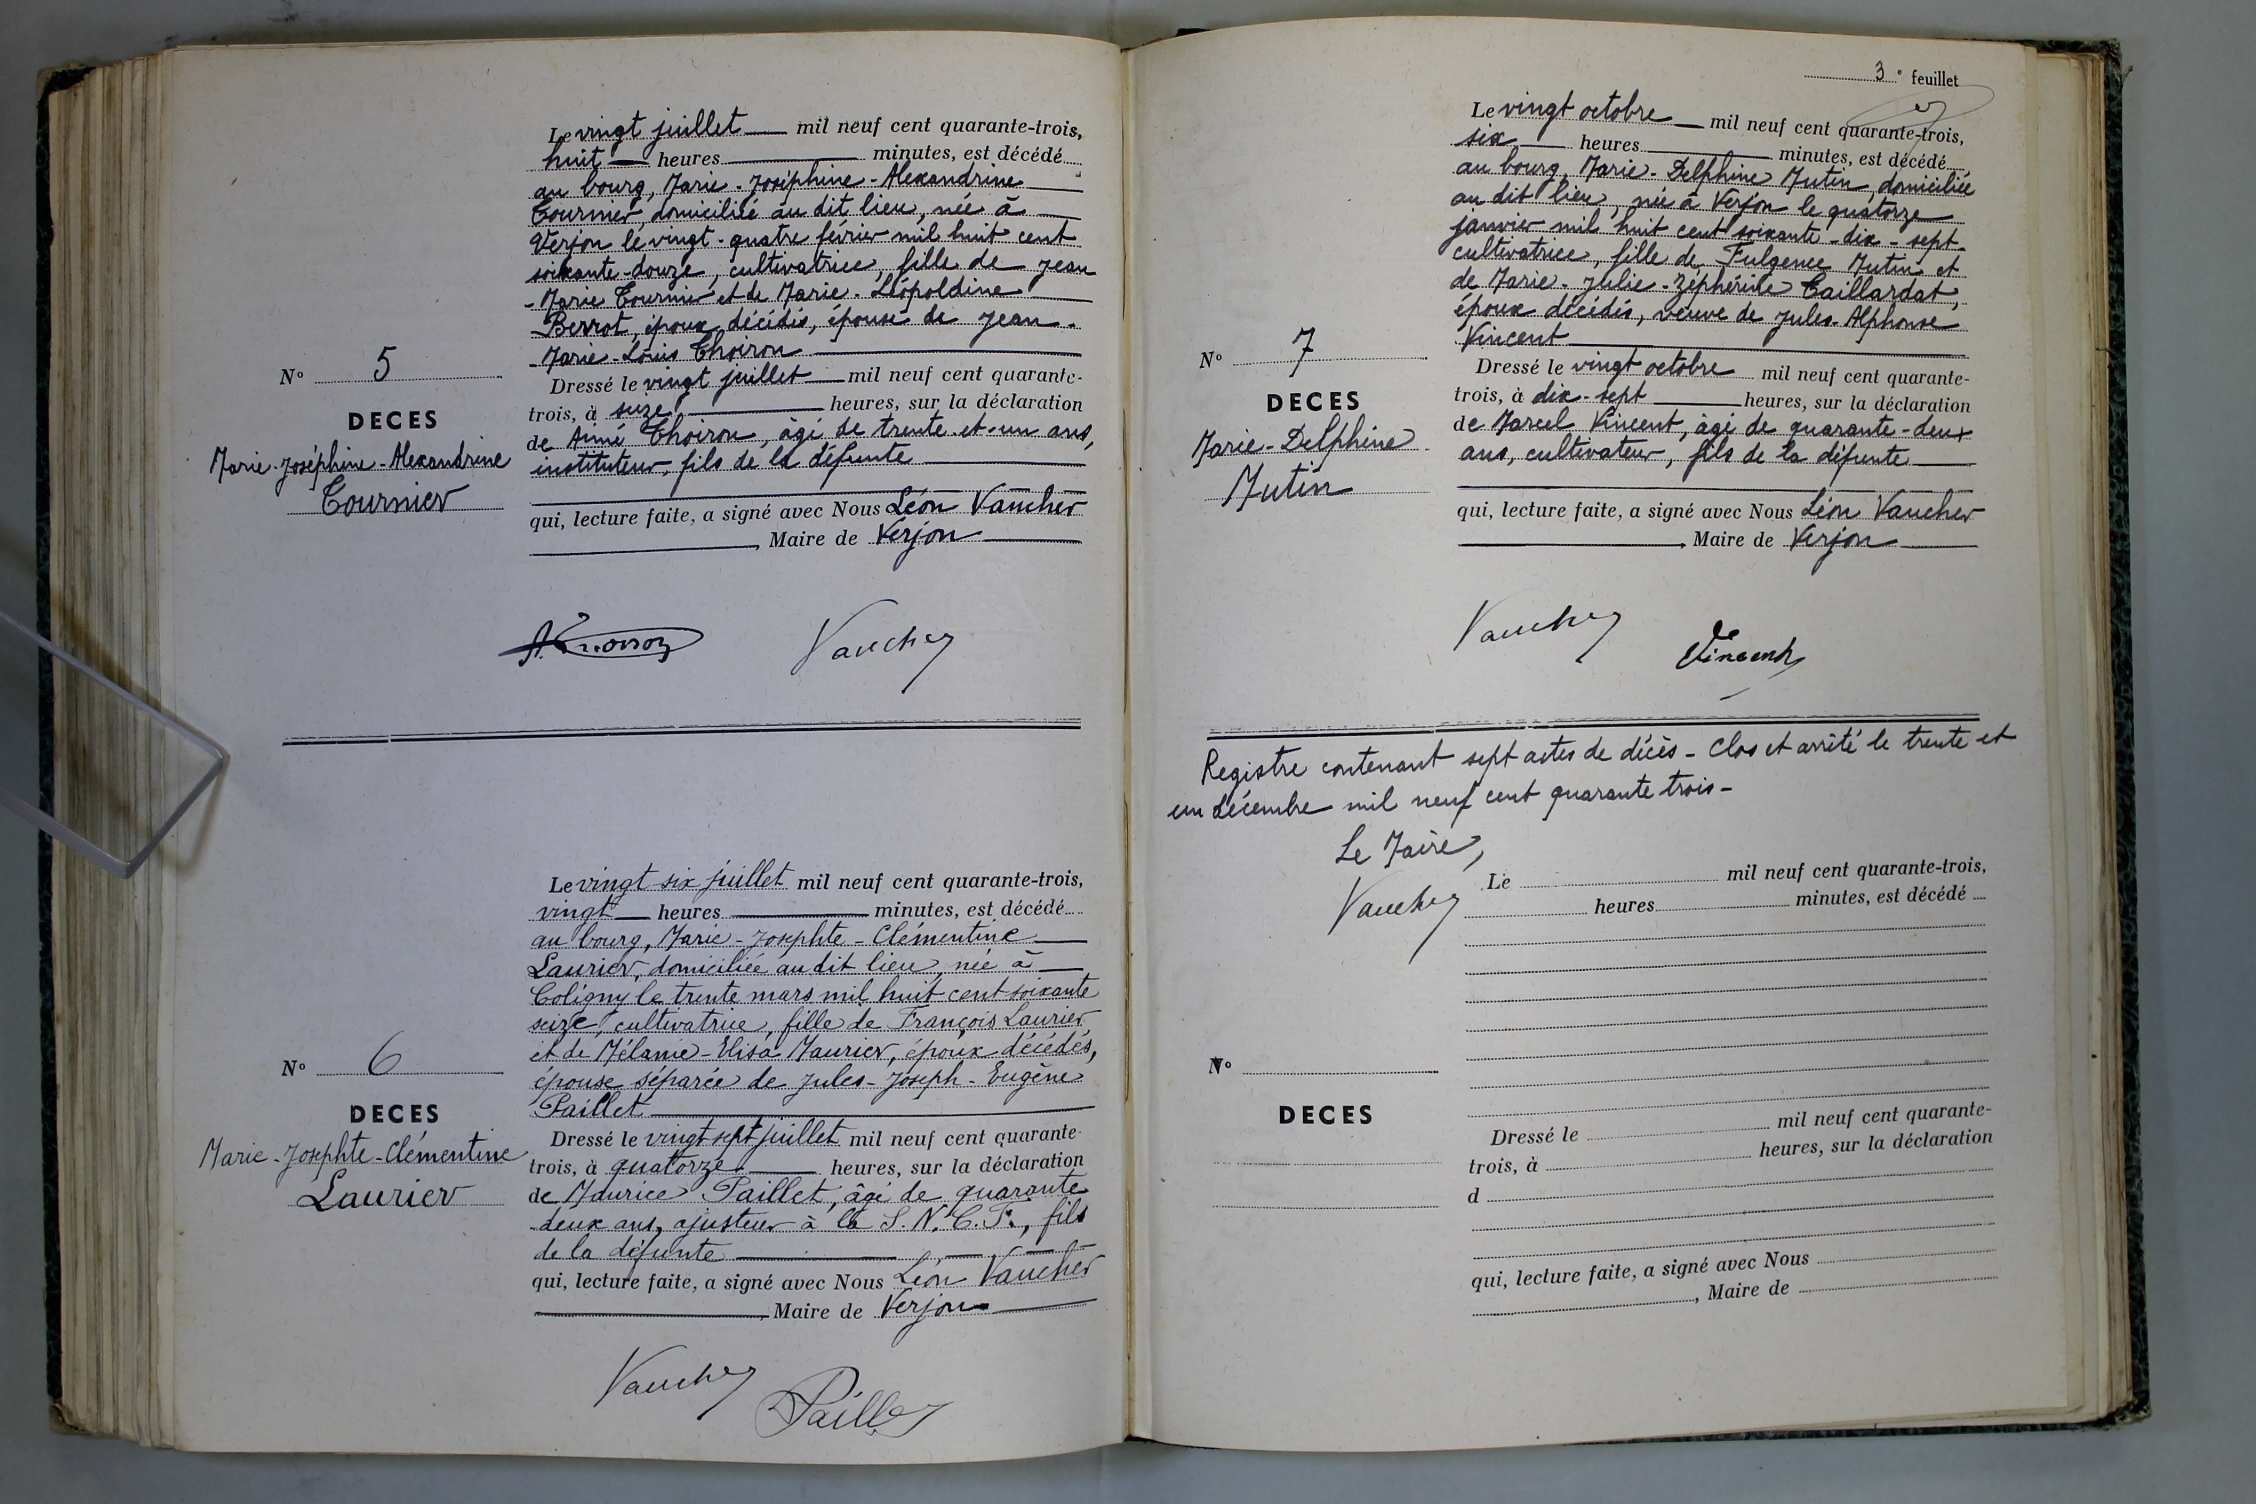 Le vingt juillet mil neuf cent quarante-trois,
huit heures minutes, est décédé
au bourg, Marie-Joséphine-Alexandrine
Tournier, domiciliée au dit lieu, née à
Verjon le vingt-quatre février mil huit cent
soixante-douze, cultivatrice, fille de Jean
-Marie Tournier et de Marie-Léopoldine
Berrot, époux décédés, épouse de Jean-
-Marie-Louis Thoiron
N° 5
DECES
Marie-Joséphine-Alexandrine
Tournier
Dressé le vingt juillet mil neuf cent quarante-
trois, à seize heures, sur la déclaration
de Aimé Thoiron, âgé de trente-et-un ans,
instituteur, fils de la défunte
qui, lecture faite, a signé avec Nous Léon Vaucher
, Maire de Verjon
A. Thoiron Vaucher
Le vingt six juillet mil neuf cent quarante-trois,
vingt heures minutes, est décédé
au bourg, Marie-Josephte-Clémentine
Laurier, domiciliée au dit lieu, née à
Coligny le trente mars mil huit cent soixante
seize, cultivatrice, fille de François Laurier
et de Mélanie-Elisa Maurier, époux décédés,
épouse séparée de Jules-Joseph-Eugène
Paillet
N° 6
DECES
Marie-Josephte-Clémentine
Laurier
Dressé le vingt sept juillet mil neuf cent quarante-
trois, à quatorze heures, sur la déclaration
de Maurice Paillet, âgé de quarante
deux ans, ajusteur à la S.N.C.F., fils
de la défunte
qui, lecture faite, a signé avec Nous Léon Vaucher
, Maire de Verjon
Vaucher
Paillet
3e feuillet
Le vingt octobre mil neuf cent quarante-trois,
six heures minutes, est décédé
au bourg, Marie-Delphine Mutin, domiciliée
au dit lieu, née à Verjon le quatorze
janvier mil huit cent soixante-dix-sept
cultivatrice, fille de Fulgence Mutin et
de Marie-Julie-Zéphérine Taillardat,
époux décédés, veuve de Jules-Alphonse
Vincent
N° 7
DECES
Marie-Delphine
Mutin
Dressé le vingt octobre mil neuf cent quarante-
trois, à dix-sept heures, sur la déclaration
de Marcel Vincent, âgé de quarante-deux
ans, cultivateur, fils de la défunte
qui, lecture faite, a signé avec Nous Léon Vaucher
, Maire de Verjon
Vaucher
Vincent
Registre contenant sept actes de décès - Clos et arrêté le trente et
un décembre mil neuf cent quarante trois -
Le Maire,
Vaucher
Le mil neuf cent quarante-trois,
heures minutes, est décédé
N°
DECES
Dressé le mil neuf cent quarante-
trois, à heures, sur la déclaration
d
qui, lecture faite, a signé avec Nous
, Maire de